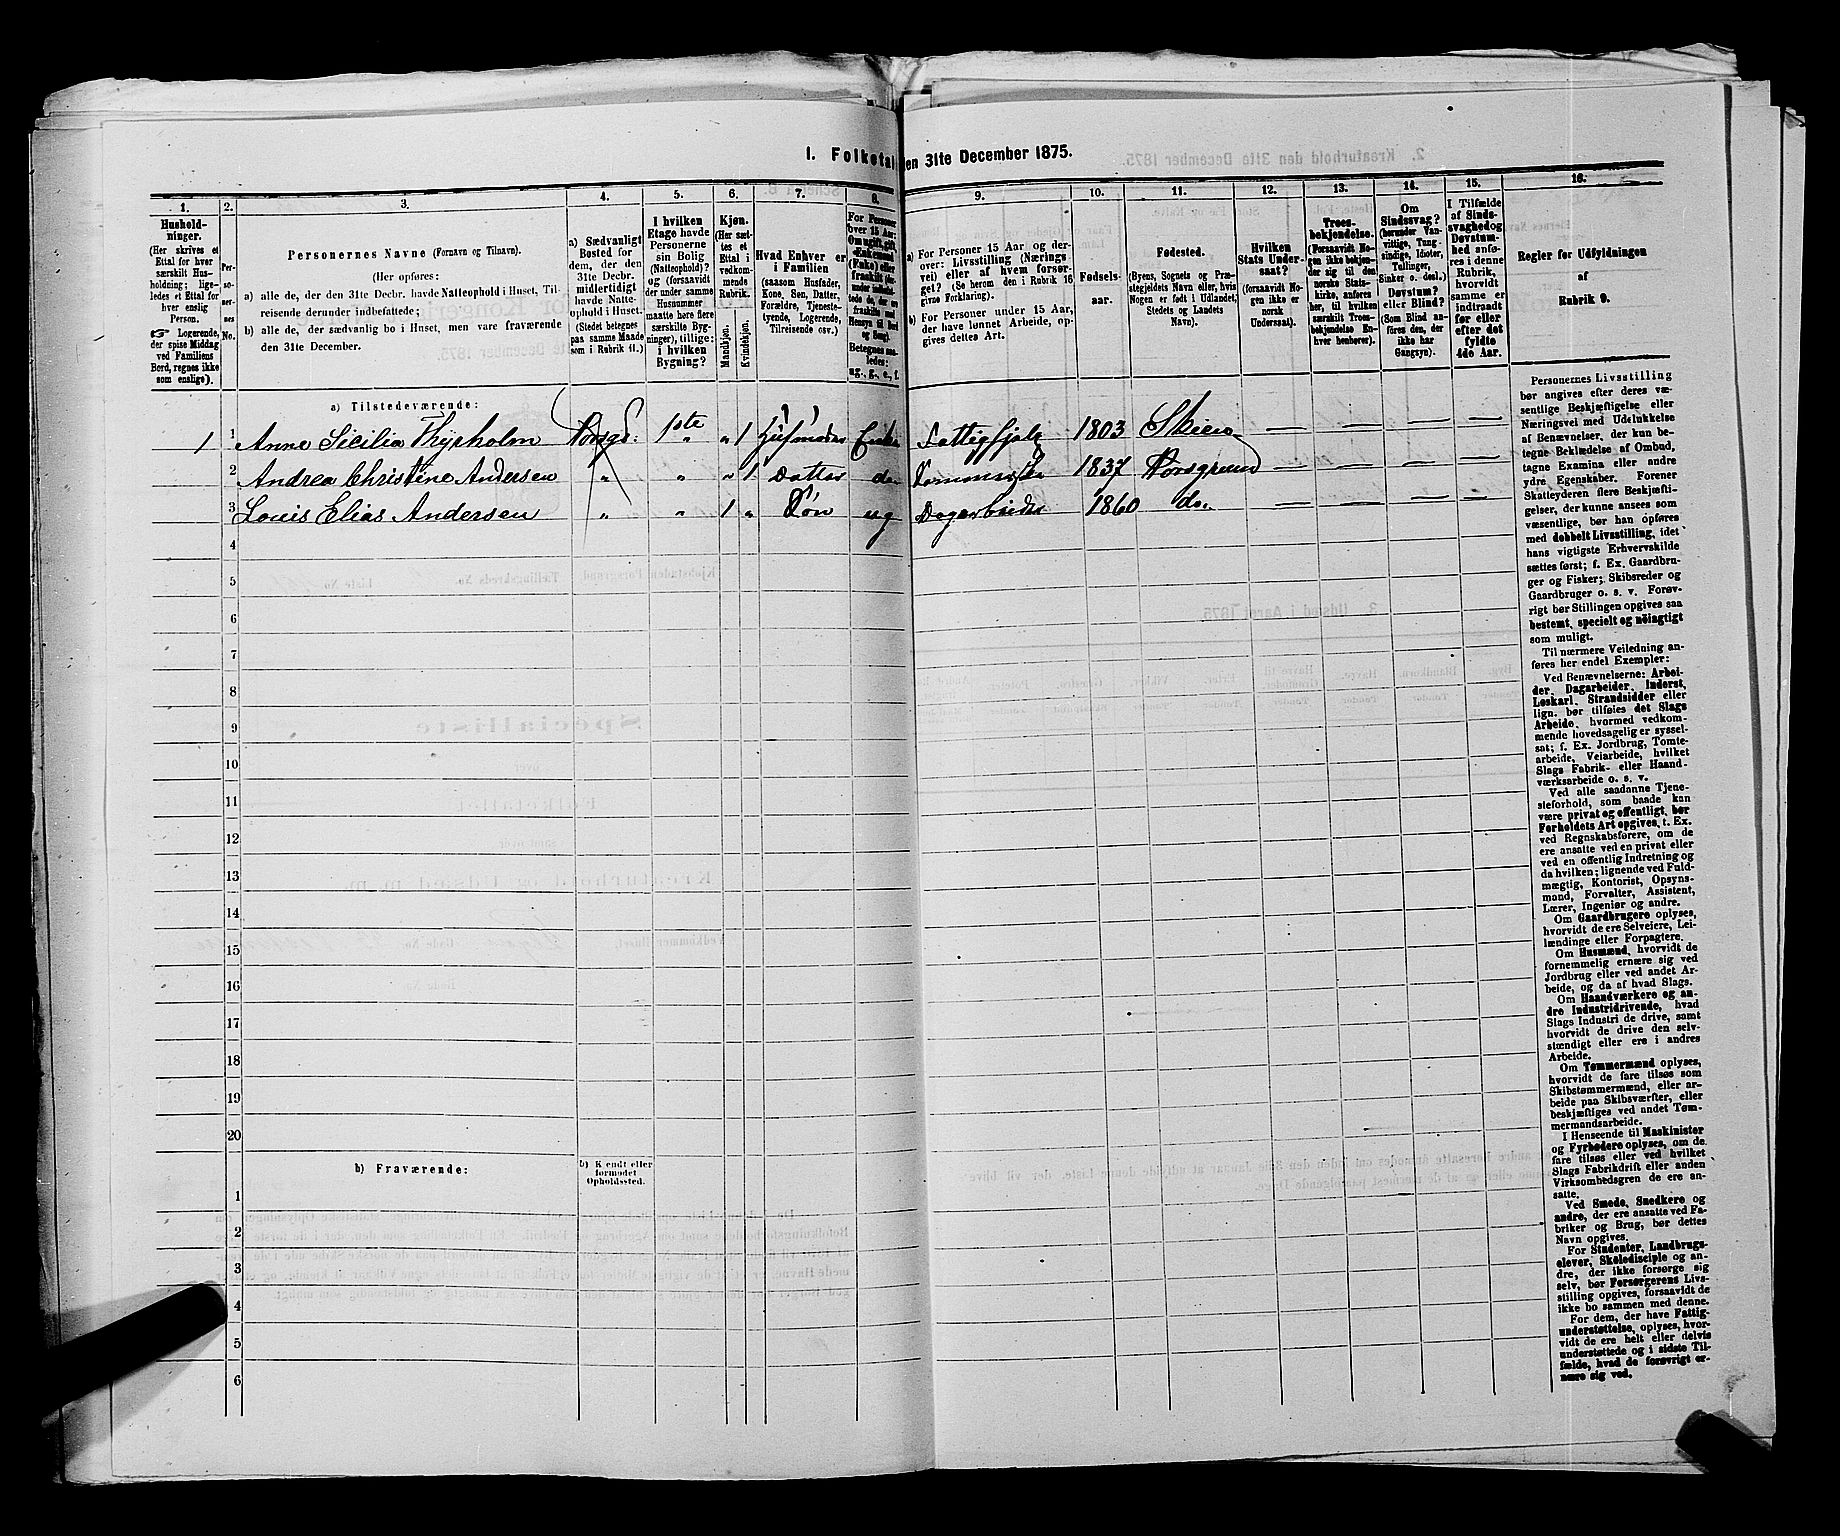 1. Folketal
en 31te December 1875.
1. 2. 3. 4. 5. 6. 7. 8. 9. 10. 11. 12. 13. 14. 15. 16.
Hushold-
ninger.
(Her skrives et
Ettal for hver
særskilt Hus-
holdning; lige-
ledes et Ettal for
hver enslig
Person.
☞ Logerende,
der spise Middag
ved Familiens
Bord, regnes ikke
som enslige).
Per-
so-
ner-
nes
No.
Personernes Navne (Fornavn og Tilnavn).
(Her opføres:
a) alle de, der den 31te Decbr. havde Natteophold i Huset, Til-
reisende derunder indbefattede;
b) alle de, der sædvanlig bo i Huset, men vare fraværende
den 31te December.
a) Sædvanligt
Bosted for
dem, der den
31te Decbr.
midlertidigt
havde Natte-
ophold i Huset.
(Stedet betegnes
paa samme Maade
som i Rubrik 11.)
I hvilken
Etage havde
Personerne
sin Bolig
(Natteophold)?
og (forsaavidt
der under samme
Husnummer
maatte høre flere
særskilte Byg-
ninger), tillige:
i hvilken
Bygning?
Kjøn.
(Her sæt-
tes et
Ettal i
vedkom-
mende
Rubrik.
Mandkjøn.
Kvindekjøn.
Hvad Enhver er
i Familien
(saasom Husfader,
Kone, Søn, Datter,
Forældre, Tjeneste-
tyende, Logerende,
Tilreisende osv.)
For Personer
over 15 Aar:
Om ugift, gift,
Enkemand
(Enke) eller
fraskilt
Betegnes saa-
ledes:
ug., g., e., f.
a) For Personer 15 Aar og der-
over: Livsstilling (Nærings-
vei) eller af hvem forsør-
get? (Se herom den i Rubrik 16
givne Forklaring).
b) For Personer under 15 Aar,
der have lønnet Arbeide, op-
gives dettes Art.
Fødsels-
aar.
Fødested.
(Byens, Sognets og Præ-
stegjeldets Navn eller, hvis
Nogen er født i Udlandet,
Stedets og Landets
Navn).
Hvilken
Stats Under-
saat?
(forsaavidt No-
gen ikke er
norsk
Undersaat).
Troes-
bekjendelse.
(Forsaavidt No-
gen ikke bekjen-
der sig til den
norske Stats-
kirke, anføres
her, til hvilken
særskilt Troes-
bekjendelse En-
hver henhører).
Om
Sindssvag?
(herunder Van-
vittige, Tung-
sindige, Idioter,
Tullinger,
Sinker o. desl.)
Døvstum?
eller Blind?
(Som Blind an-
føres den, der
ikke har
Gangsyn).
I Tilfælde
af Sinds-
svaghed og
Døvstum-
hed anfø-
res i denne
Rubrik,
hvorvidt
samme er
indtraadt
før eller
efter det
fyldte
4de Aar.
Regler for Udfyldningen
af
Rubrik 9.
a) Tilstedeværende:
1 1 Anne Sicilia Thyrholm Porsgr: 1ste " 1 Husmoder Enke Fattighjelp 1803 Skien — — — —
2 Andrea Christine Andersen " " " 1 Datter do 1837 Porsgrund — — — —
3 Louis Elias Andersen " " 1 " Søn ug Dagarbeider 1860 do. — — — —
4
5
6
7
8
9
10
11
12
13
14
15
16
17
18
19
20
b) Fraværende:
b) Kjendt eller
formodet
Opholdssted.
1
2
3
4
5
6
Personernes Livsstilling
bør angives efter deres væ-
sentlige Beskjæftigelse eller
Næringsvei med Udelukkelse
af Benævnelser, der kun be-
tegne Beklædelse af Ombud,
tagne Examina eller andre
ydre Egenskaber. Forener
Skatteyderen flere Beskjæfti-
gelser, der kunne ansees som
væsentlige, bør han opføres
med dobbelt Livsstilling, idet
hans vigtigste Erhvervskilde
sættes først; f. Ex. Gaardbru-
ger og Fisker; Skibsreder og
Gaardbruger o. s. v. Forøv-
rigt bør Stillingen opgives saa
bestemt, specielt og nøiagtigt
som muligt.
Til nærmere Veiledning an-
føres her endel Exempler:
Ved Benævnelserne: Arbei-
der, Dagarbeider, Inderst,
Løskarl, Strandsidder eller
lign. bør tilføies det Slags
Arbeide, hvormed vedkom-
mende hovedsagelig er syssel-
sat; f. Ex. Jordbrug, Tomte-
arbeide, Veiarbeide, hvilket
Slags Fabrik- eller Haand-
værksarbeide o. s. v.
Ved alle saadanne Tjene-
steforhold, som baade kan
være privat og offentligt, bør
Forholdets Art opgives, t. Ex.
ved Regnskabsførere, om de
ere ansatte ved en privat eller
ved en offentlig Indretning og
da hvilken; lignende ved Fuld-
mægtig, Kontorist, Opsyns-
mand, Forvalter, Assistent,
Lærer, Ingeniør og andre.
Om Gaardbrugere oplyses,
hvorvidt de ere Selveiere, Lei-
lændinge eller Forpagtere.
Om Husmænd, hvorvidt de
fornemmelig ernære sig ved
Jordbrug eller ved andet Ar-
beide, og da af hvad Slags.
Om Haandværkere og an-
dre Industridrivende, hvad
Slags Industri de drive, samt
hvorvidt de drive den selv-
stændigt eller ere i andres
Arbeide.
Om Tømmermænd oplyses,
hvorvidt de fare tilsøs som
Skibstømmermænd, eller ar-
beide paa Skibsværfter, eller
beskjæftiges ved andet Tøm-
mermandsarbeide.
I Henseende til Maskinister
og Fyrbødere oplyses, om de
fare tilsøs eller ved hvilket
Slags Fabrikdrift eller anden
Virksomhedsgren de ere an-
satte.
Ved Smede, Snedkere og
andre, der ere ansatte ved Fa-
briker og Brug, bør dettes
Navn opgives.
For Studenter, Landbrugs-
elever, Skoledisciple og an-
dre, der ikke forsørge sig
selv, bør Forsørgerens Livs-
stilling opgives, forsaavidt de
ikke bo sammen med denne.
For dem, der have Fattig-
understøttelse, oplyses, hvor-
vidt de ere helt eller delvis
understøttede og i sidste Til-
fælde, hvad de forøvrigt er-
nære sig ved.